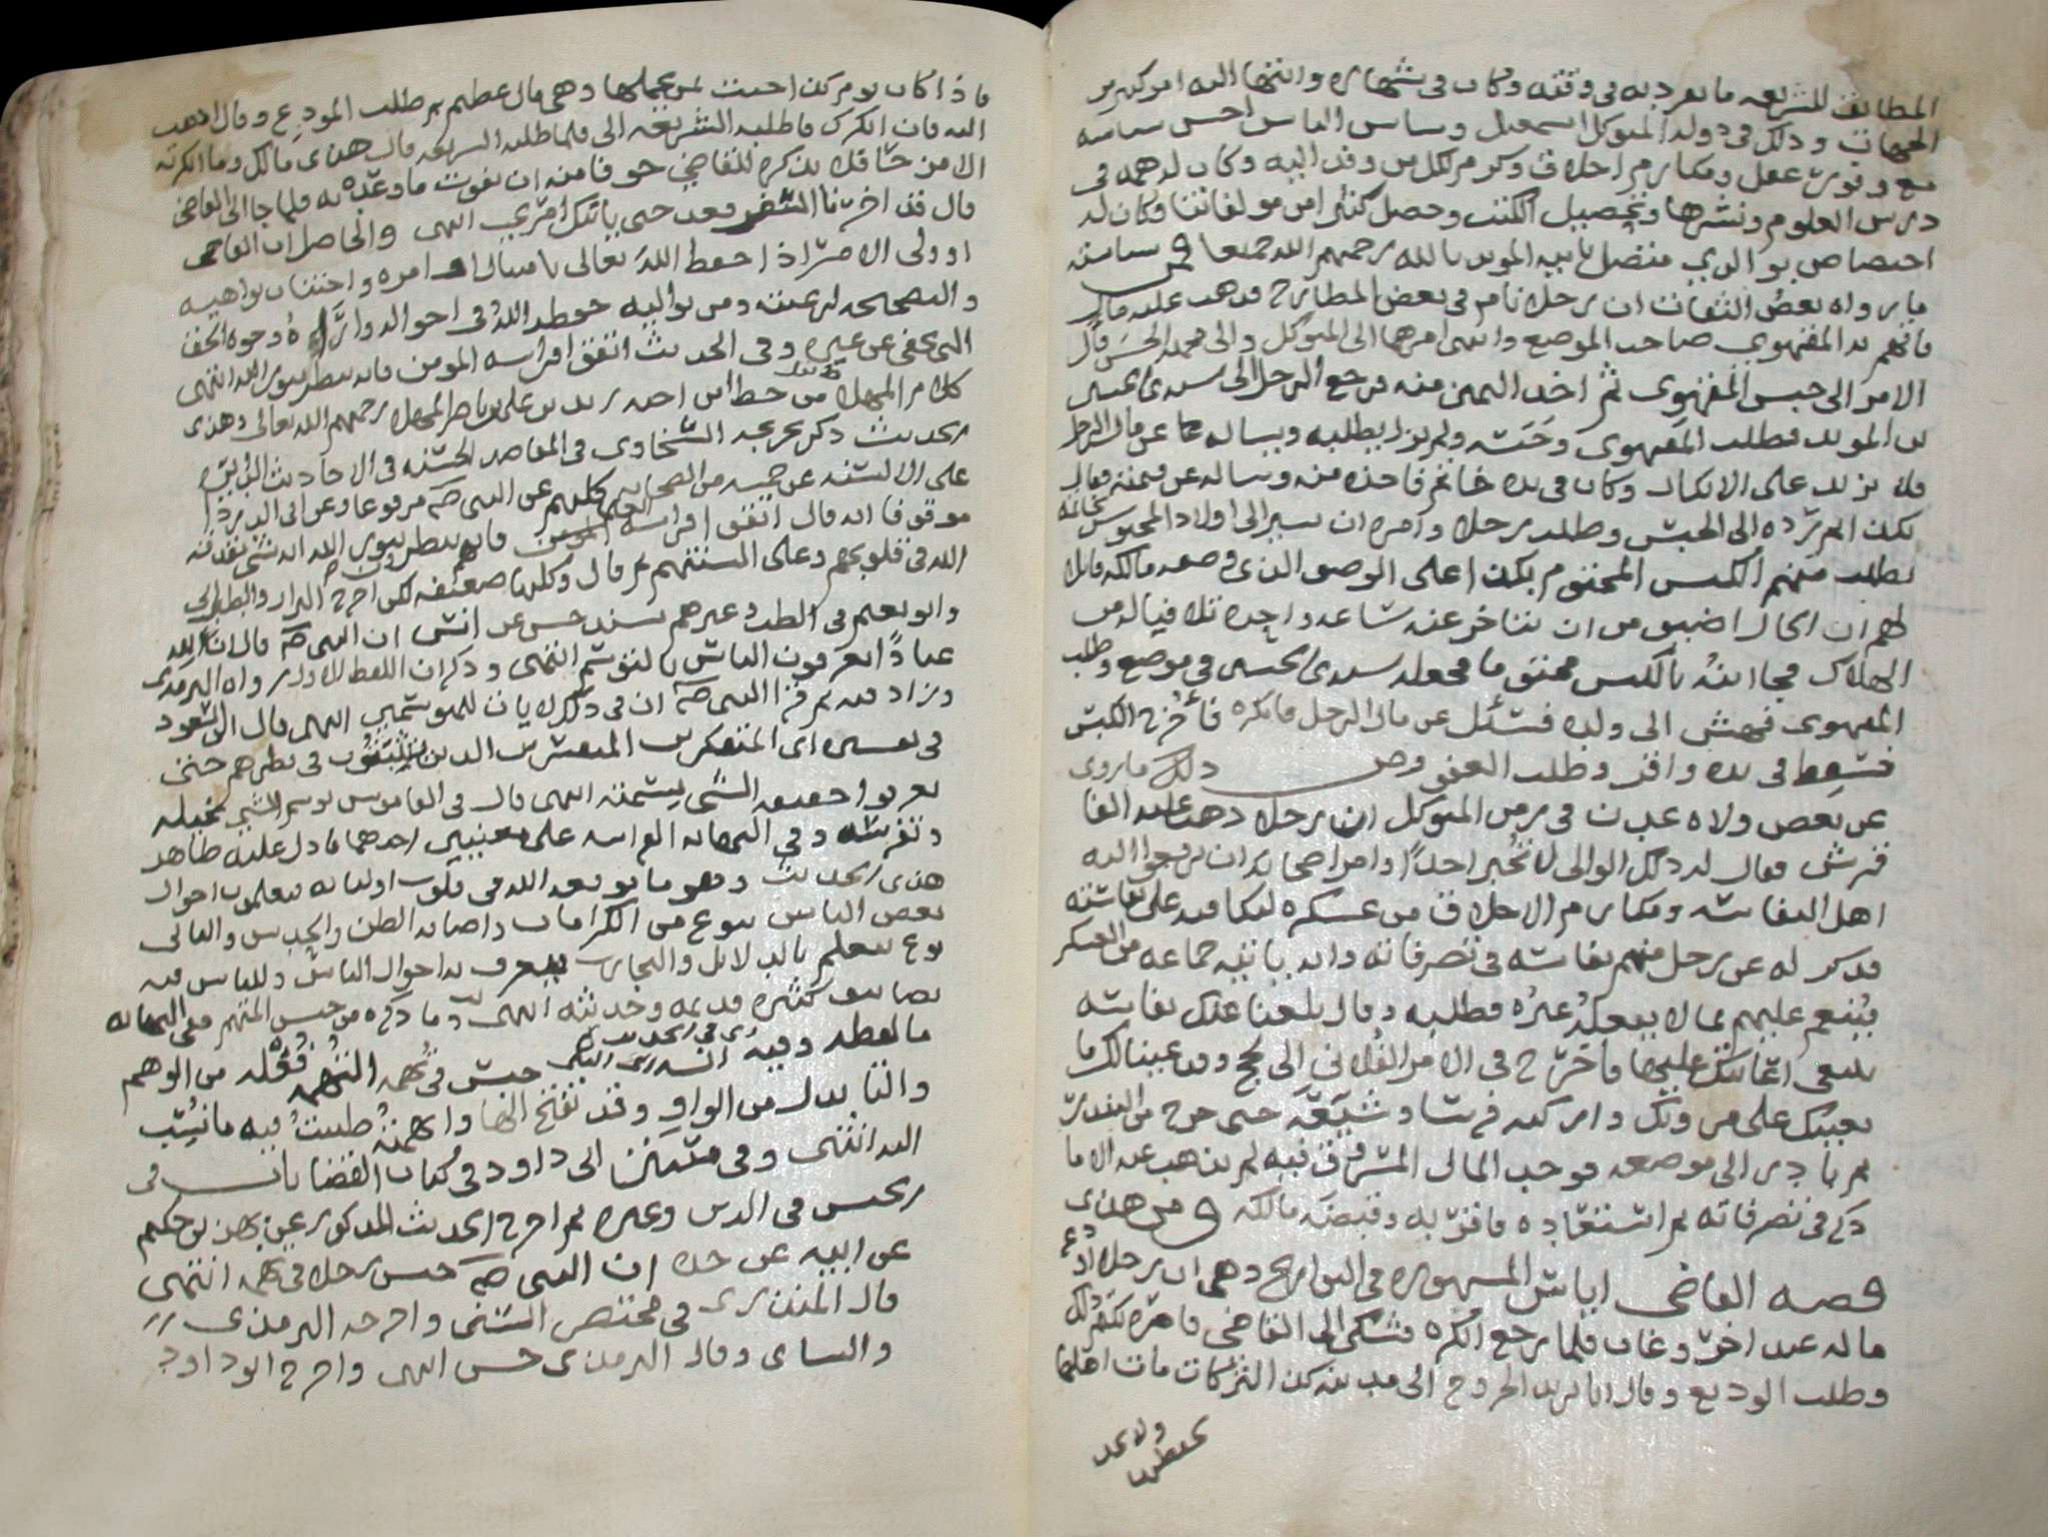 المطابق للشريعه ما يعرف به في وقته وكان في شهاره وانتها اليه امر كثير من
الجهات وذلك في دولة المتوكل اسمعيل وساس الناس احسن سياسه
مع وفور عقل ومكارم اخلاق وكرم لكل من وفد اليه وكان له همه في
درس العلوم ونشرها وتحصيل الكتب وحصل كثيرا من مولفاتنا وكان له
اختصاص بوالدي متصل بابيه المويد بالله رحمهم الله جميعا ومن سياسته
ما رواه بعض الثقات ان رجلا نام في بعض المطارح فذهب عليه مال
فاتهم به المقهوي صاحب الموضع وانتهى امرهما الى المتوكل والى محمد بن الحسن فآل
الامر الى حبس المقهوي ثم اخذ اليمين منه فرجع الرجل الى سيدي الحسين
بن المويد فطلب المقهوي وحبسه ولم يزل يطلبه ويساله عن مال الرجل
فلا يزيد على الانكار وكان في يده خاتم فاخذه منه وساله عن قيمته فقال
بكذا ثم رده الى الحبس وطلب رجلا وامره ان يسير الى اولاد المحبوس بخاتمه
يطلب منهم الكيس المختوم بكذا على الوصف الذي وصفه مالكه قائلا
لهم ان الحال اضيق من ان يتاخر عنه ساعة واحدة لما يناله من
الهلاك فجا ابنه بالكيس مختوما فجعله سيدي الحسين في موضع وطلب
المقهوي فسئل عن مال الرجل فانكره فأخرج الكيس
فسقط في يده واقر وطلب العفو ومن ذلك ما روي
عن بعض ولاة عدن في زمن المتوكل ان رجلا ذهب عليه الفا
قرش فقال له ذلك الوالي لا تخبر احداً وامر اصحابه ان يرفعوا اليه
اهل النفاسه ومكارم الاخلاق من عسكره ليكافيه على نفاسته
فذكر له عن رجل منهم نفاسه في تصرفاته وانه ياتيه جماعه من العسكر
فينعم عليهم بما لا يفعله غيره فطلبه وقال بلغنا عنك نفاسه
ينبغي اعانتك عليها فاخرج في الامر الفلاني الى لحج وقد عينا لك ما
يعينك على مروتك وامر كذا قرشا وشيعه حتى خرج من البندر
ثم بادر الى موضعه فوجد المال المسروق فيه لم يذهب منه الا ما
ذكر في تصرفاته ثم استعاده فاقر به وقبضه مالكه ومن هذا
قصه القاضي اياس المشهوره في التواريخ وهي ان رجلا اودع
ماله عند اخر وغاب فلما رجع انكره فشكى الى القاضي فامره بكتم ذلك
وطلب الوديع وقال انا اريد الخروج الى مدينة كذا لتركات مات اهلها
ولا احد
يحفظها
فاذا كان يوم كذا احببت لمن يحملها وهي مال عظيم ثم طلب المودع وقال اذهب
اليه فان انكرك فاطلبه الشريعه الي فلما طلبه الشريعه قال هذا مالك وما انكرته
الا مزحا قبل يذكره للقاضي خوفا منه ان يفوت ما وعده به فلما جا الى القاضي
قال قد اخرنا السفر فعد حتى ياتيك امري انتهى والحاصل ان القاضي
او ولي الامر اذا حفظ الله تعالى بامتثال اوامره واجتناب نواهيه
والنصاحه لرعيته ومن يواليه حفظه الله في احواله واراه وجوه الحق
التي تخفى عن غيره وفي الحديث اتقوا فراسه المومن فانه ينظر بنور الله انتهى
كلام المهلا من خط ابن احمد بن علي بن ناصر المهلا رحمهم الله تعالى وهذا
الحديث ذكر تخريجه السخاوي في المقاصد الحسنه في الاحاديث الدائره
على الالسنه عن خمسه من الصحابه كلهم عن النبي صلم مرفوعا وعن ابي الدردا
موقوفا انه قال اتقوا فراسة العلما فانهم ينظرون بنور الله انه شي يقذفه
الله في قلوبهم وعلى السنتهم ثم قال وكلها ضعيفه لكن اخرج البزار والطبراني
وابو نعيم في الطب وغيرهم بسند حسن عن انس ان النبي صلم قال ان لله
عباداً يعرفون الناس بالتوسم انتهى وذكر ان اللفظ الاول رواه الترمذي
وزاد فيه ثم قرا النبي صلم ان في ذلك لايات للمتوسمين انتهى قال ابو السعود
في تفسيره اي المتفكرين المتفرسين الذين يتثبتون في نظرهم حتى
يعرفوا حقيقه الشي بسمته انتهى قال في القاموس توسم الشي تخيله
وتفرسه وفي النهايه الفراسه على معنيين احدهما ما دل عليه ظاهر
هذا الحديث وهو ما يوقعه الله في قلوب اوليائه فيعلمون احوال
بعض الناس بنوع من الكرامات واصابه الظن والحدس والثاني
نوع يتعلم بالدلائل والتجارب فيعرف به احوال الناس وللناس فيه
تصانيف كثيره قديمه وحديثه انتهى وما ذكره من حبس المتهم ففي النهايه
ما لفظه وفيه اي في الحديث انه صلى الله حبس في تهمه التهمه فُعْله من الوهم
والتا بدل من الواو وقد تفتح الها واتهمته ظننت فيه ما نُسِب
اليه انتهى وفي سنن ابي داود في كتاب القضا باب في
الحبس في الدين وغيره ثم اخرج الحديث المذكور عن بهز بن حكيم
عن ابيه عن جده ان النبي صلم حبس رجلا في تهمه انتهى
قال المنذري في مختصر السنن واخرجه الترمذي
والنسائي وقال الترمذي حسن انتهى واخرج ابو داود